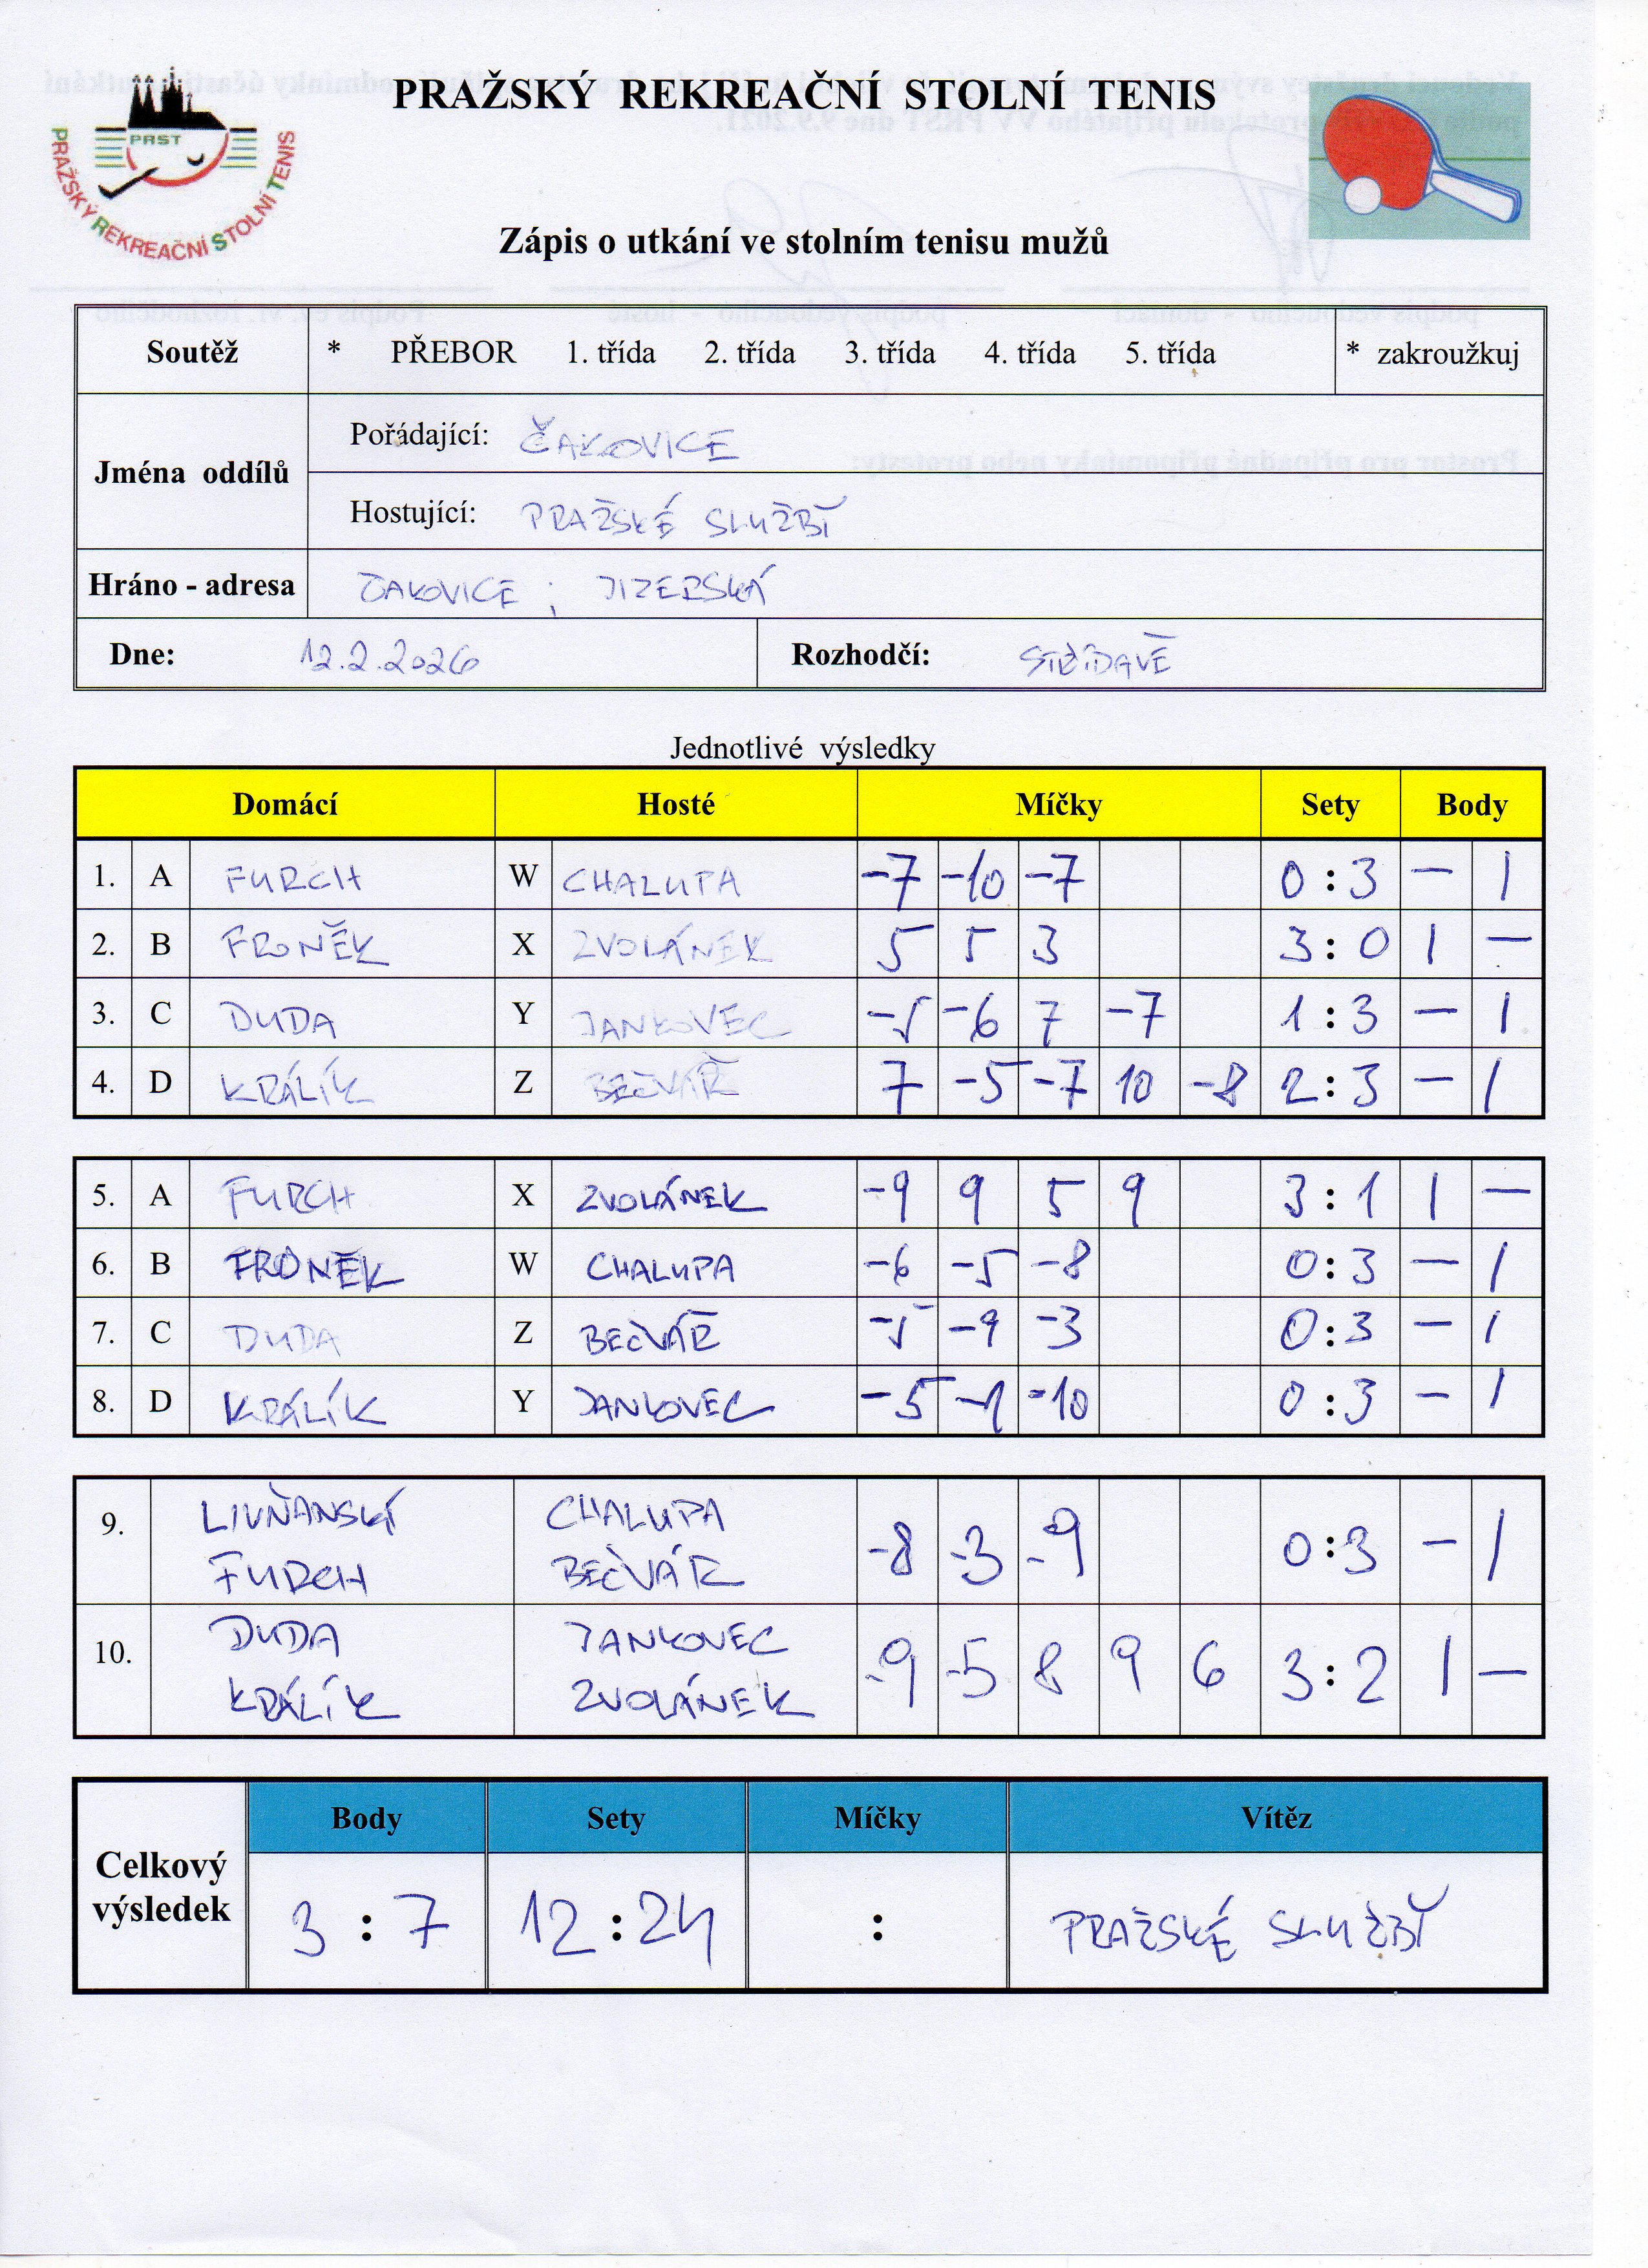 PRAŽSKÝ REKREAČNÍ STOLNÍ TENIS
PRST
PRAŽSKÝ REKREAČNÍ STOLNÍ TENIS
Zápis o utkání ve stolním tenisu mužů
Soutěž * PŘEBOR 1. třída 2. třída 3. třída 4. třída 5. třída * zakroužkuj
Jména oddílů
Pořádající: ČAKOVICE
Hostující: PRAŽSKÉ SLUŽBY
Hráno - adresa ČAKOVICE ; JIZERSKÁ
Dne: 12.2.2026 Rozhodčí: STŘÍDAVĚ
Jednotlivé výsledky
Domácí Hosté Míčky Sety Body
1. A FURCH W CHALUPA -7 -10 -7 0 : 3 — 1
2. B FRONĚK X ZVOLÁNEK 5 5 3 3 : 0 1 —
3. C DUDA Y JANKOVEC -5 -6 7 -7 1 : 3 — 1
4. D KRÁLÍK Z BEČVÁŘ 7 -5 -7 10 -8 2 : 3 — 1
5. A FURCH X ZVOLÁNEK -9 9 5 9 3 : 1 1 —
6. B FRONĚK W CHALUPA -6 -5 -8 0 : 3 — 1
7. C DUDA Z BEČVÁŘ -5 -9 -3 0 : 3 — 1
8. D KRÁLÍK Y JANKOVEC -5 -9 -10 0 : 3 — 1
9. LIVŇANSKÝ CHALUPA -8 -3 -9 0 : 3 — 1
FURCH BEČVÁŘ
10. DUDA JANKOVEC -9 -5 8 9 6 3 : 2 1 —
KRÁLÍK ZVOLÁNEK
Celkový výsledek
Body Sety Míčky Vítěz
3 : 7 12 : 24 : PRAŽSKÉ SLUŽBY